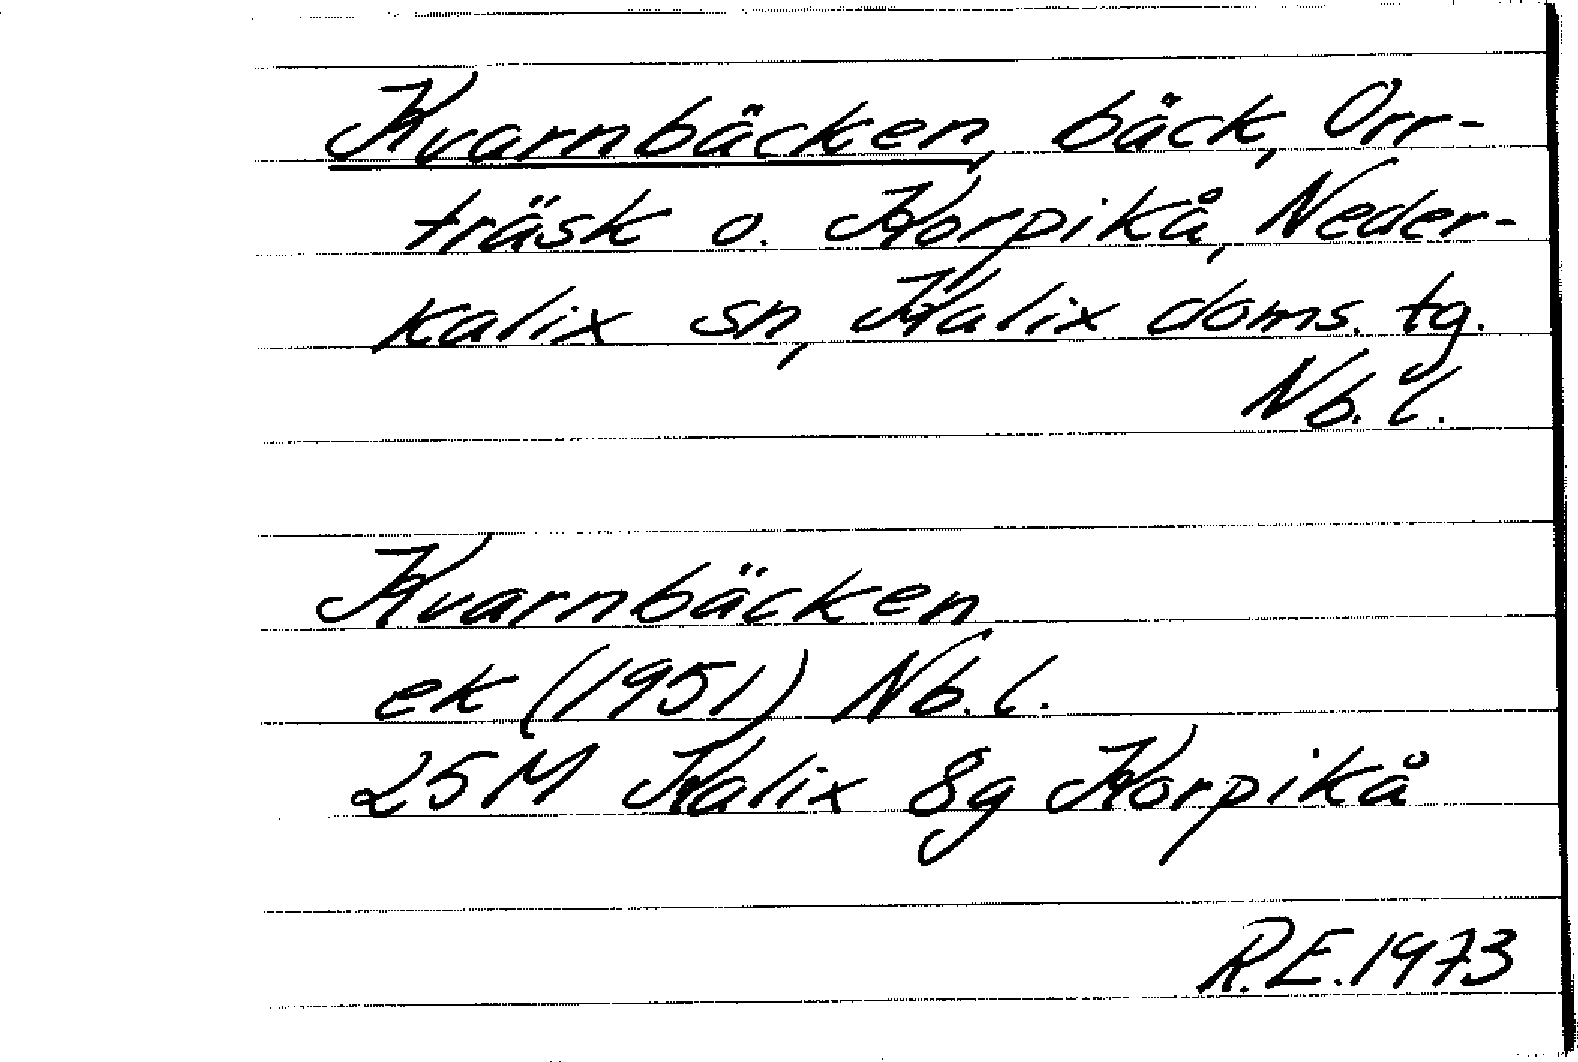 Kvarnbäcken, bäck, Orr-
träsk o. Korpikå, Neder-
kalix sn, Kalix doms. tg.
Nb. l.
Kvarnbäcken
ek (1951) Nb. l.
25M Kalix 8g Korpikå
R.E. 1973